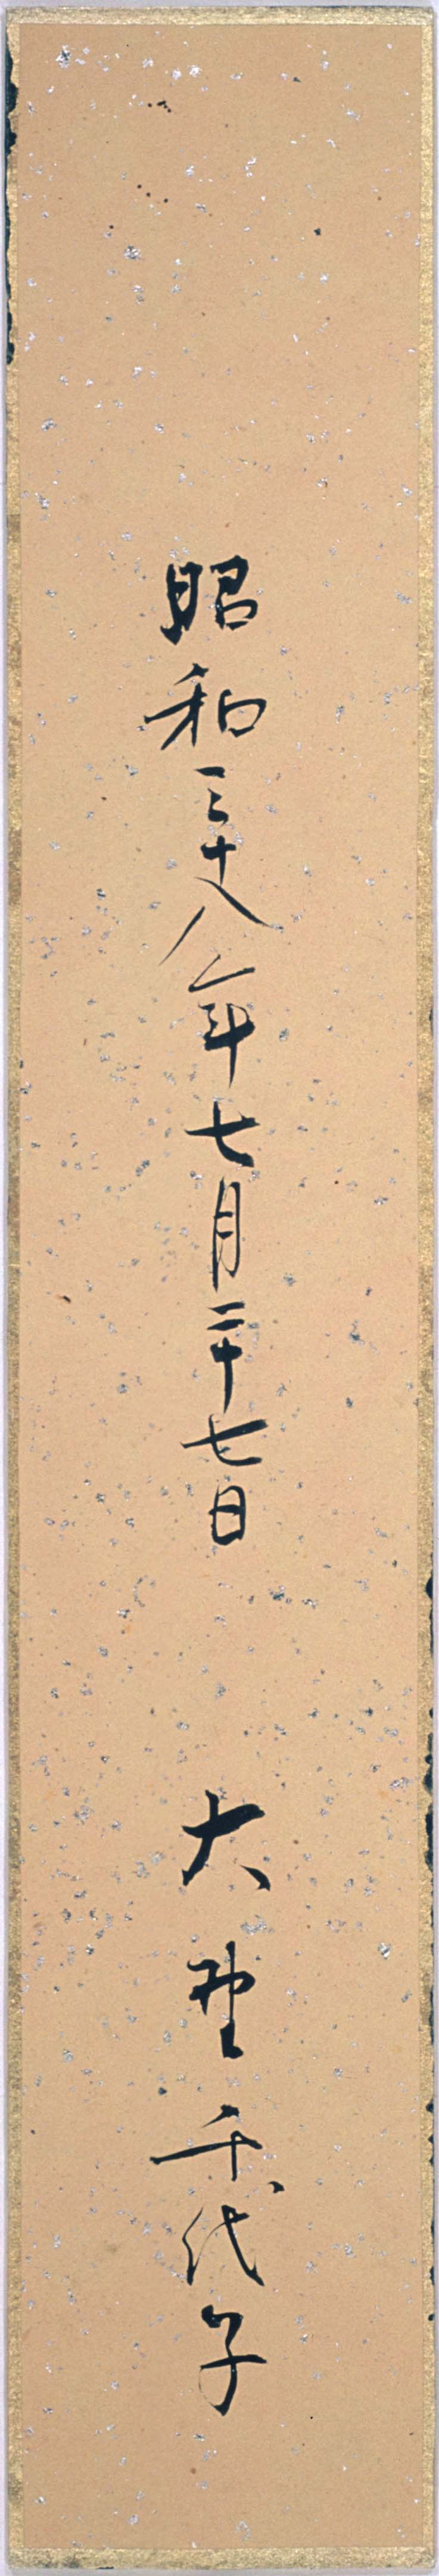 昭和三十八年七月二十七日　大野千代子